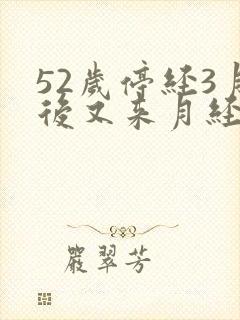 52歲停經3月
後又来月經
嚴翠芳